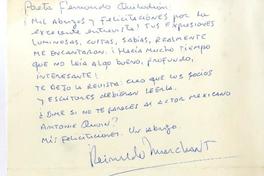 Poeta Fernando Quilodrán
¡Mil abrazos y felicitaciones por la
excelente entrevista! Tus expresiones
luminosas, cultas, sabias, realmente
me encantaron. ¡Hacía mucho tiempo
que no leía algo bueno, profundo,
interesante!
Te dejo la revista: creo que los socios
y escritores debieran leerla.
¿Dime si no te pareces al actor mexicano
Antonie Quinn?
Mis felicitaciones. Un abrazo.
Reinaldo Marchant